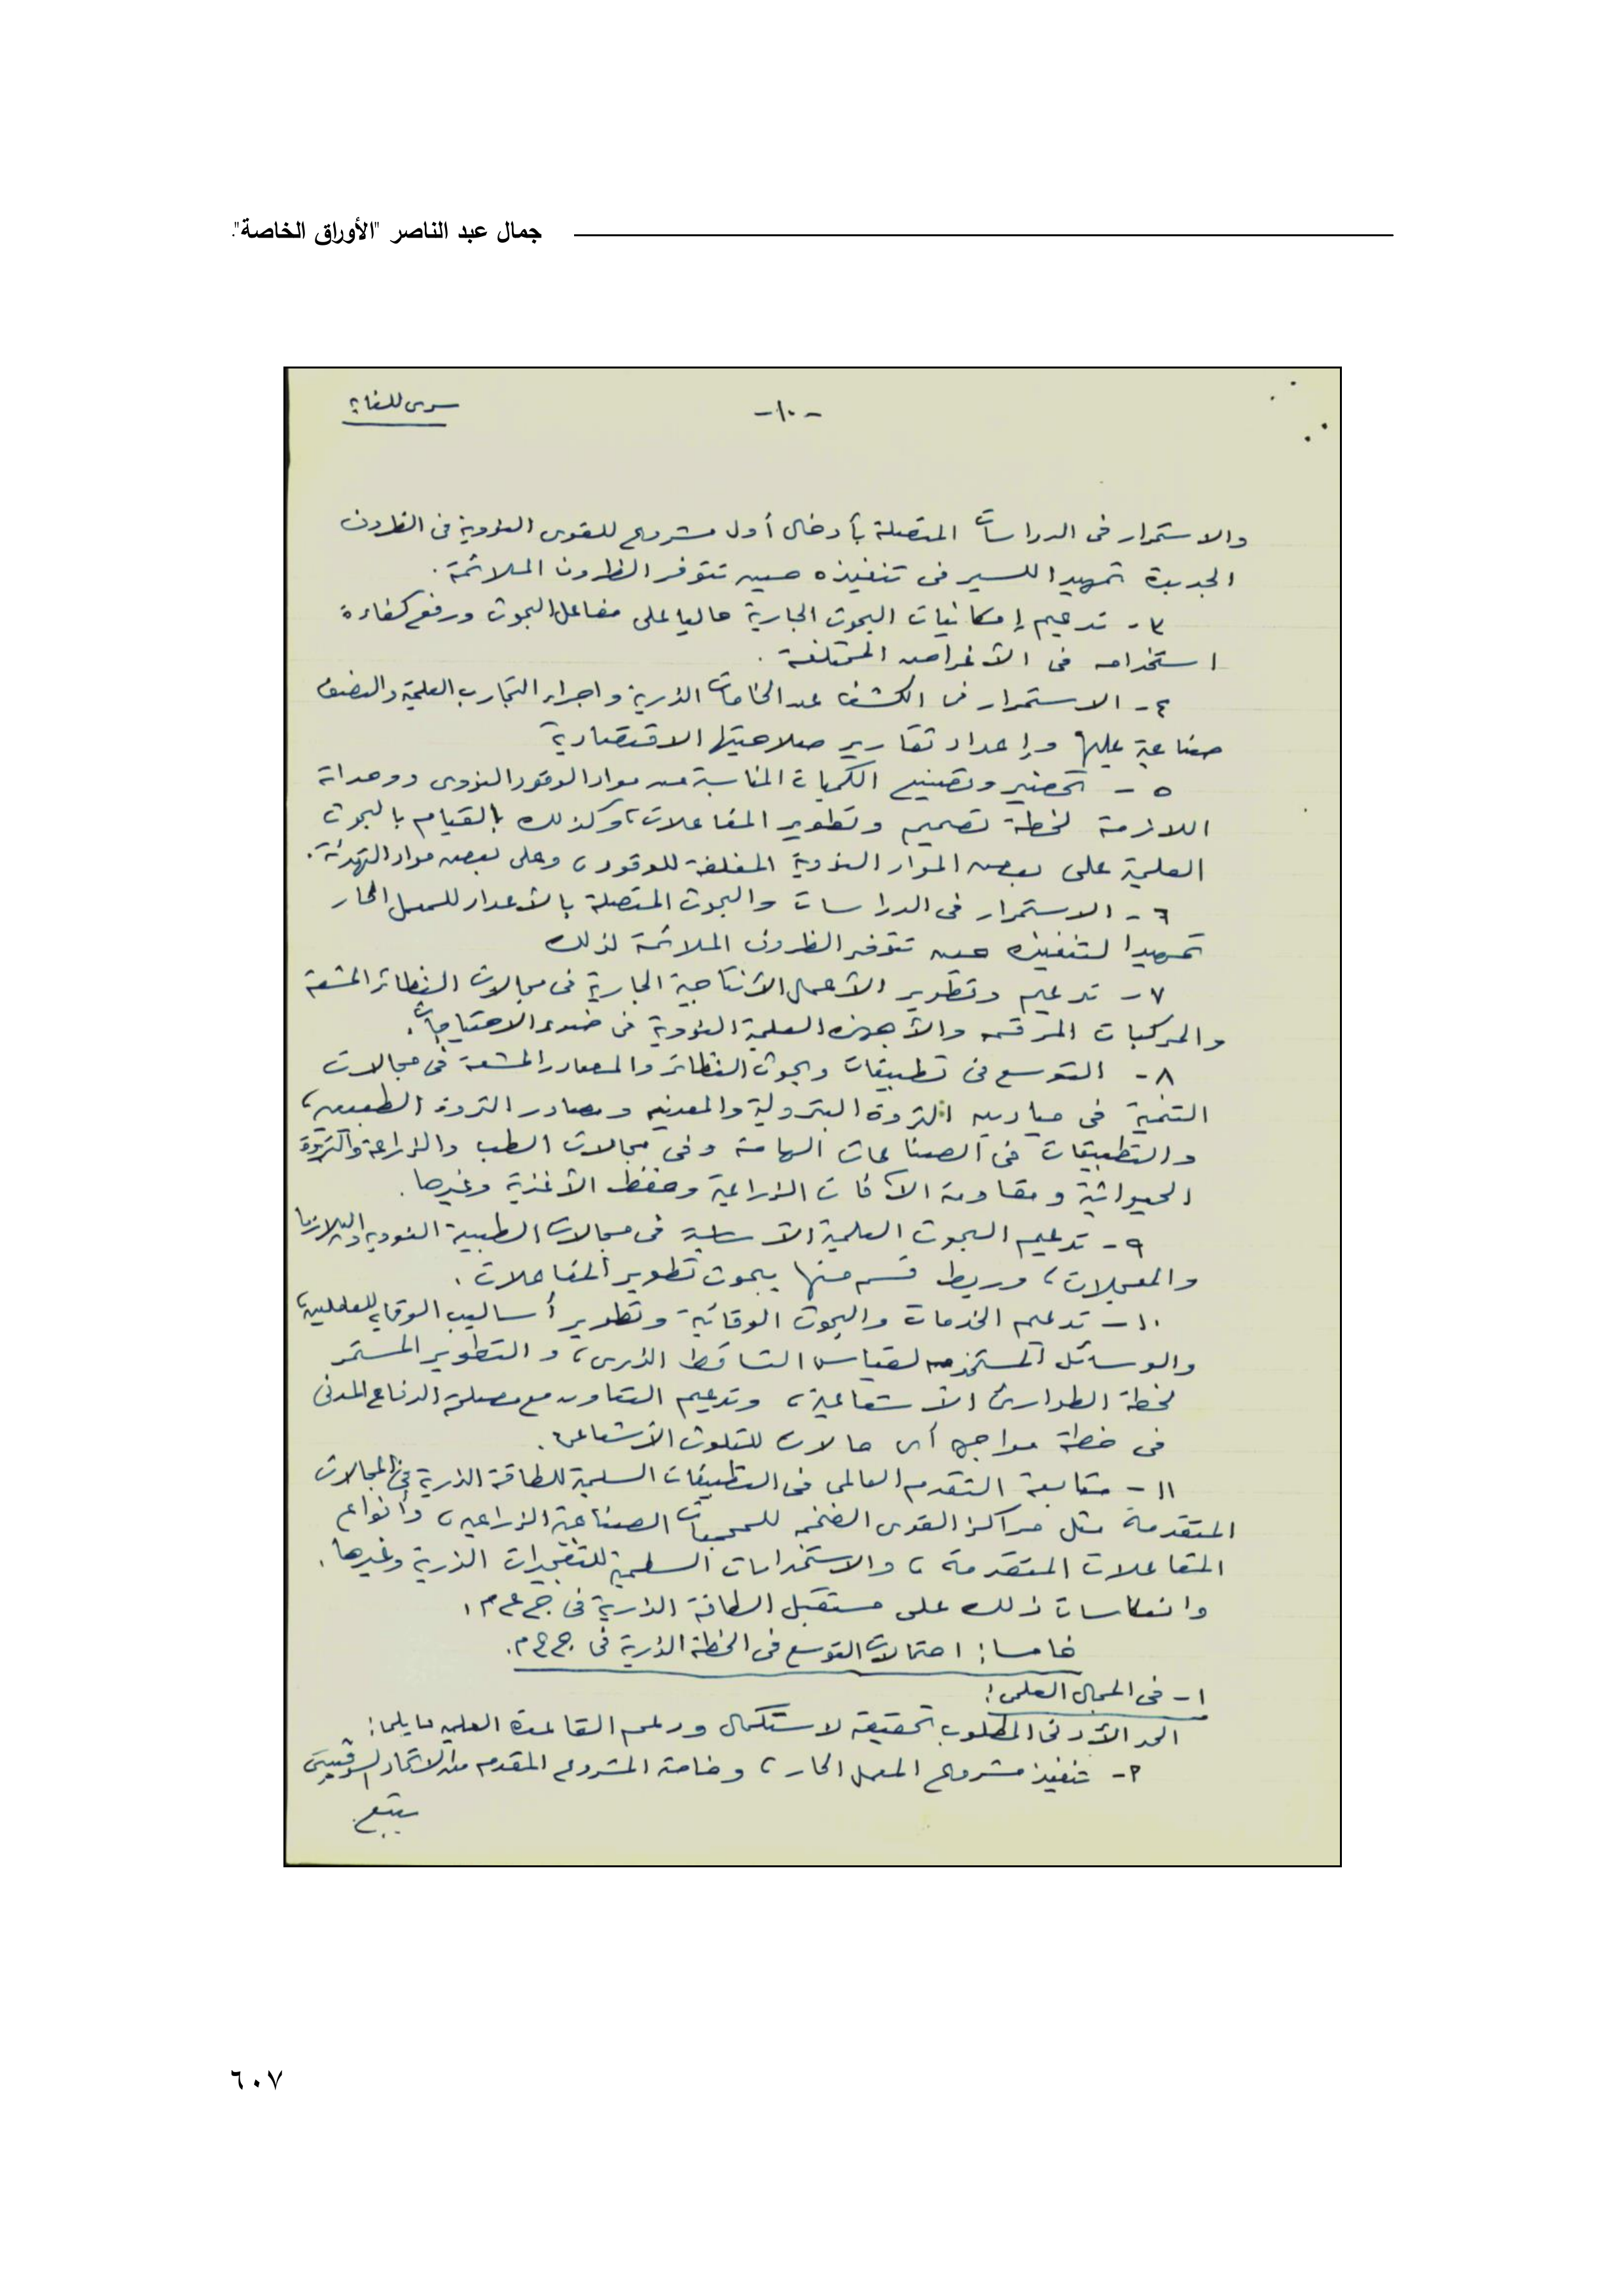 جمال عبد الناصر "الأوراق الخاصة".
سرى للغاية
-١٠-
والاستمرار فى الدراسات المتصلة بأدخال أول مشروع للقوى النووية فى الظروف
الجديدة تمهيدا للسير فى تنفيذه حين تتوفر الظروف الملائمة.
٣- تدعيم إمكانيات البحوث الجارية حاليا على مفاعل البحوث ورفع كفاءة
استخدامه فى الأغراض المختلفة.
٤- الاستمرار فى الكشف عن الخامات الذرية واجراء التجارب العلمية والنصف
صناعية عليها وإعداد تقارير صلاحيتها الاقتصادية
٥- تحضير وتصنيع الكميات المناسبة من مواد الوقود النووى ووحداته
اللازمة لخطة تصميم وتطوير المفاعلات، وكذلك بالقيام بالبحوث
العلمية على بعض المواد النووية المغلفة للوقود، وعلى بعض مواد التهدئة.
٦- الاستمرار فى الدراسات والبحوث المتصلة بالأعداد للمعمل الحار
تمهيدا لتنفيذه حين تتوفر الظروف الملائمة لذلك
٧- تدعيم وتطوير الأعمال الأنتاجية الجارية فى مجالات النظائر المشعة
والمركبات المرقمه والأجهزه العلمية النووية فى ضوء الاحتياجات.
٨- التوسع فى تطبيقات وبحوث النظائر والمصادر المشعة فى مجالات
التنمية فى ميادين الثروة البترولية والمعدنيه ومصادر الثروة الطبيعيه،
والتطبيقات فى الصناعات الهامة وفى مجالات الطب والزراعة والثروة
الحيوانية ومقاومة الآفات الزراعية وحفظ الأغذية وغيرها.
٩- تدعيم البحوث العلمية الأساسية فى مجالات الطبيعة النوويه والبلازما
والمعجلات، وربط قسم منها ببحوث تطوير المفاعلات.
١٠- تدعيم الخدمات والبحوث الوقائية وتطوير أساليب الوقايه للعاملين،
والوسائل المستخدمه لقياس التساقط الذرى، والتطوير المستمر
لخطة الطوارئ الأشعاعية، وتدعيم التعاون مع مصلحة الدفاع المدنى
فى خطة مواجهة أى حالات للتلوث الأشعاعى.
١١- متابعة التقدم العالمى فى التطبيقات السلمية للطاقة الذرية فى المجالات
المتقدمة مثل مراكز القوى الضخمه للمجمعات الصناعية الزراعيه، وأنواع
المتفاعلات المتقدمة، والاستخدامات السلمية للتفجيرات الذرية وغيرها.
وانعكاسات ذلك على مستقبل الطاقة الذرية فى ج ع م.
خامسا: احتمالات التوسع فى الخطة الذرية فى ج ع م.
١- فى المجال العلمى:
الحد الأدنى المطلوب تحقيقه لاستكمال ودعم القاعدة العلميه ما يلى:
٢- تنفيذ مشروع المعمل الحار، وخاصة المشروع المقدم من الاتحاد السوفييتى
يتبع
٦٠٧